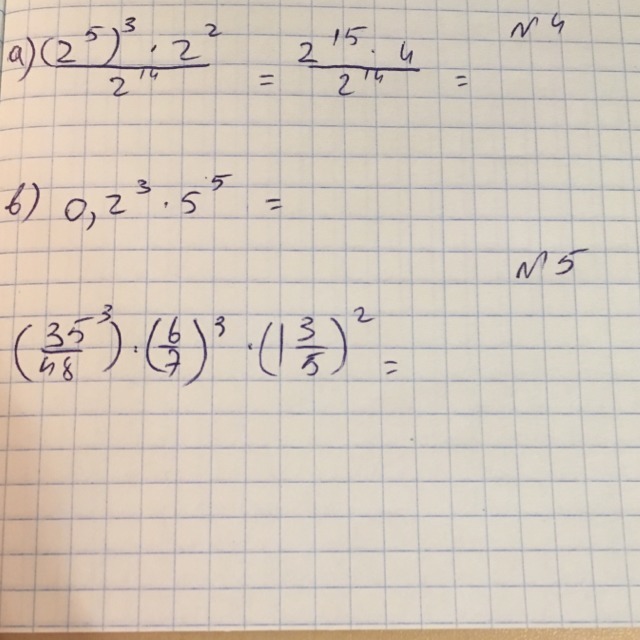 N 4
а) (2^5)^3 · 2^2 / 2^14 = 2^15 · 4 / 2^14 =
в) 0,2^3 · 5^5 =
N 5
(35^3/48) · (6/7)^3 · (1 3/5)^2 =